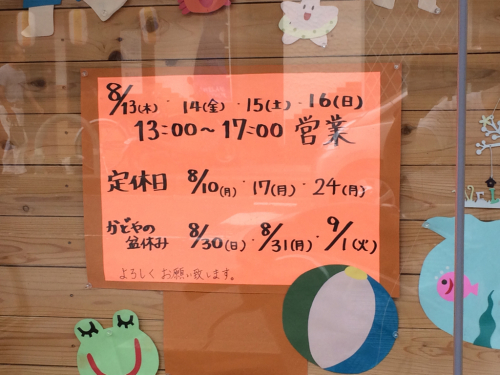 8/13(木)・14(金)・15(土)・16(日)
13:00～17:00 営業
定休日 8/10(月)・17(月)・24(月)
かどやの 盆休み 8/30(日)・8/31(月)・9/1(火)
よろしくお願い致します。